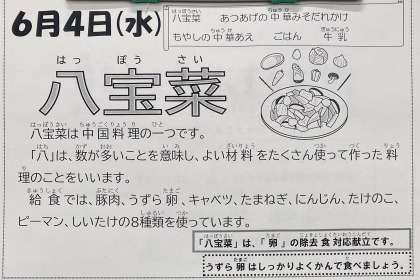 6月4日(水)
八宝菜 あつあげの中華みそだれかけ
もやしの中華あえ ごはん 牛乳
はっ ぽう さい
八宝菜
八宝菜は中国料理の一つです。
「八」は、数が多いことを意味し、よい材料をたくさん使って作った料
理のことをいいます。
給食では、豚肉、うずら卵、キャベツ、たまねぎ、にんじん、たけのこ、
ピーマン、しいたけの8種類を使っています。
「八宝菜」は、「卵」の除去食対応献立です。
うずら卵はしっかりよくかんで食べましょう。